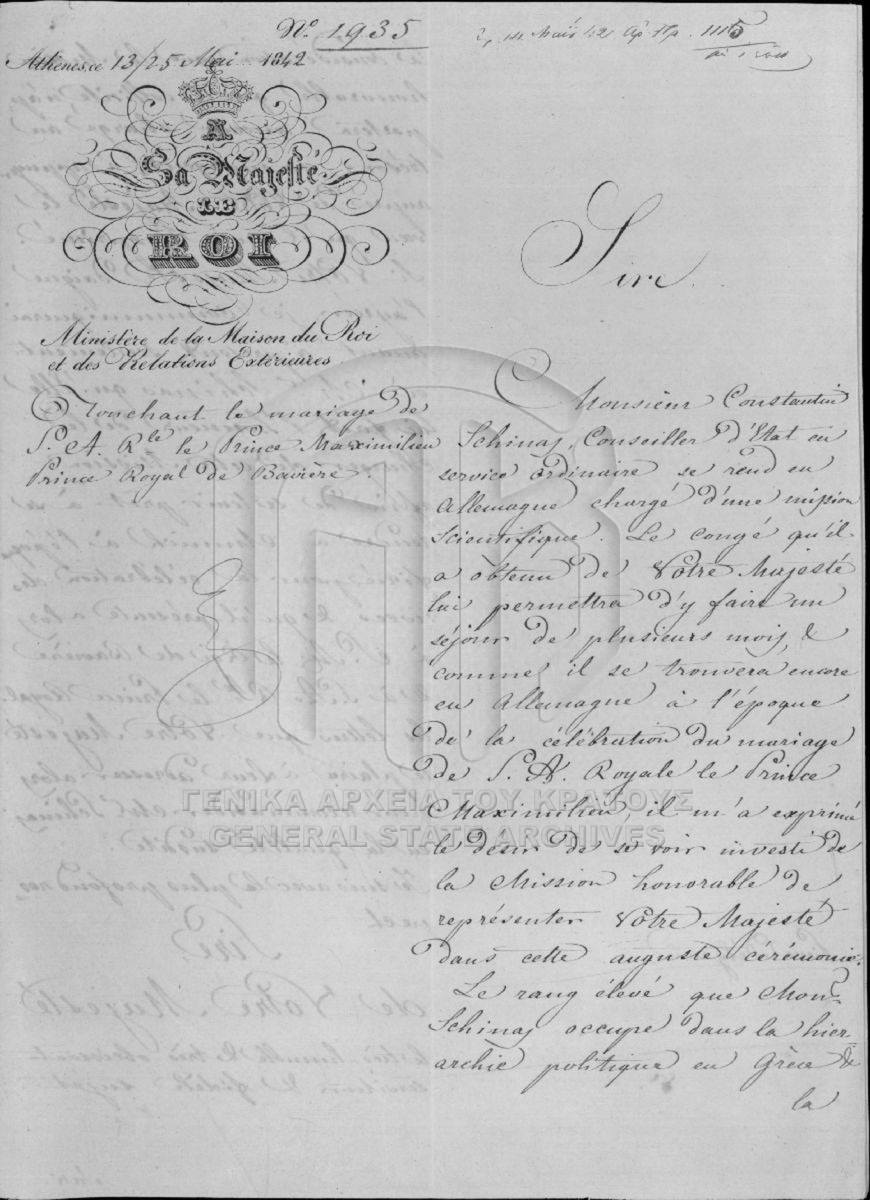 Nº 1935
14 Μαΐου 42 Αρ Πρ. 1115
Athènes, ce 13/25 Mai 1842
A
Sa Majesté
LE
ROI
Ministère de la Maison du Roi
et des Relations Extérieures.
Touchant le mariage de
S. A. Rle le Prince Maximilien
Prince Royal de Bavière.
Sire.
Monsieur Constantin
Schinas, Conseiller d'Etat en
service ordinaire se rend en
Allemagne chargé d'une mission
scientifique. Le congé qu'il
a obtenu de Votre Majesté
lui permettra d'y faire un
séjour de plusieurs mois, &
comme il se trouvera encore
en Allemagne à l'époque
de la célébration du mariage
de S. A. Royale le Prince
Maximilien, il m'a exprimé
le désir de se voir investi de
la Mission honorable de
représenter Votre Majesté
dans cette auguste cérémonie.
Le rang élevé que Monr
Schinas occupe dans la hier-
archie politique en Grèce &
la
ΓΕΝΙΚΑ ΑΡΧΕΙΑ ΤΟΥ ΚΡΑΤΟΥΣ
GENERAL STATE ARCHIVES